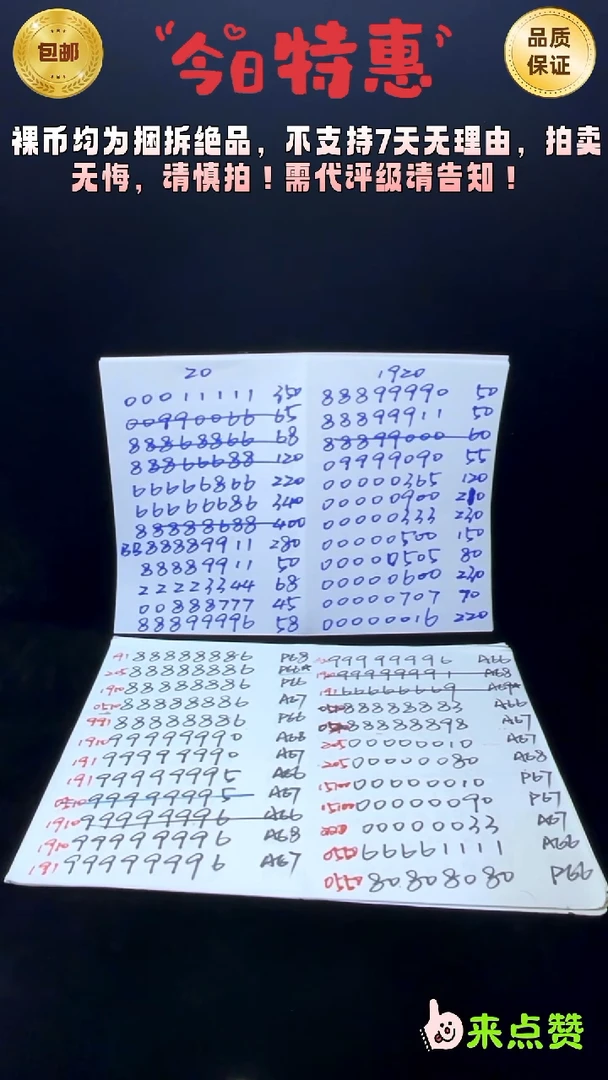 包邮
今日特惠
品质
保证
裸币均为捆拆绝品，不支持7天无理由，拍卖
无悔，请慎拍！需代评级请告知！
20
00011111 350
00990066 65
88868866 68
88866688 120
66666866 220
66666686 340
88888688 400
BB88889911 280
88889911 50
22223344 68
00888777 45
88899996 58
1920
88899990 50
88899911 50
88899000 60
09999090 55
00000365 120
00000900 210
00000333 230
00000500 150
00000505 80
00000600 230
00000707 90
00000016 220
91 88888886 P68
205 88888886 P66*
1980 88888886 P66
0510 88888886 A67
991 88888886 P66
1910 99999990 A68
191 99999990 A67
191 99999995 A66
0510 99999995 A67
1910 99999996 A66
1910 99999996 A68
191 99999996 A67
99999996 A66
99999991 A68
191 66666669
88888883 A66
88888898 A67
205 00000010 A67
205 00000080 A68
1500 00000010 P67
1500 00000090 P67
00000033 A67
0550 66661111 A66
0550 80808080 P66
来点赞